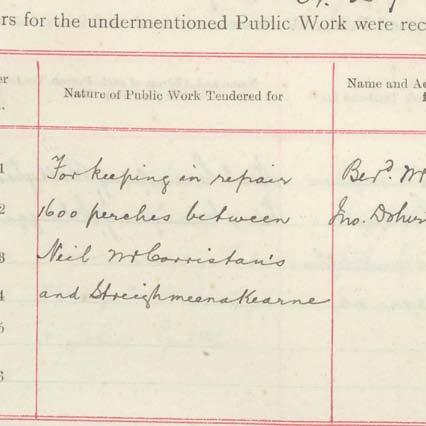 ers for the undermentioned Public Work were rec
er
Nature of Public Work Tendered for
Name and Ad
1 For keeping in repair Berd. Mc
2 1600 perches between Jno. Doher
3 Neil McCorristan's
4 and Streighmeenakearne
5
6